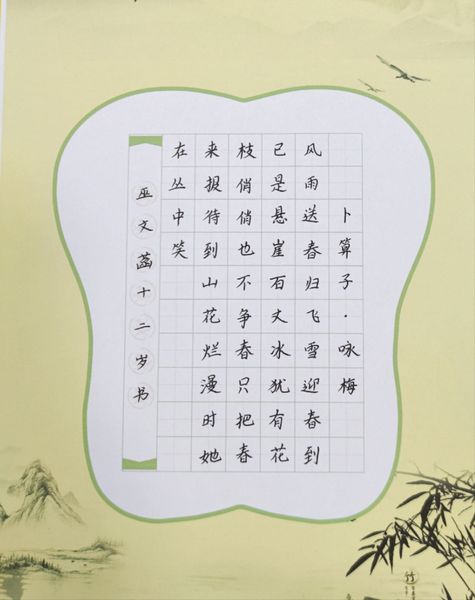 卜算子·咏梅
风雨送春归飞雪迎春到
已是悬崖百丈冰犹有花
枝俏俏也不争春只把春
来报待到山花烂漫时她
在丛中笑
巫文菡十二岁书